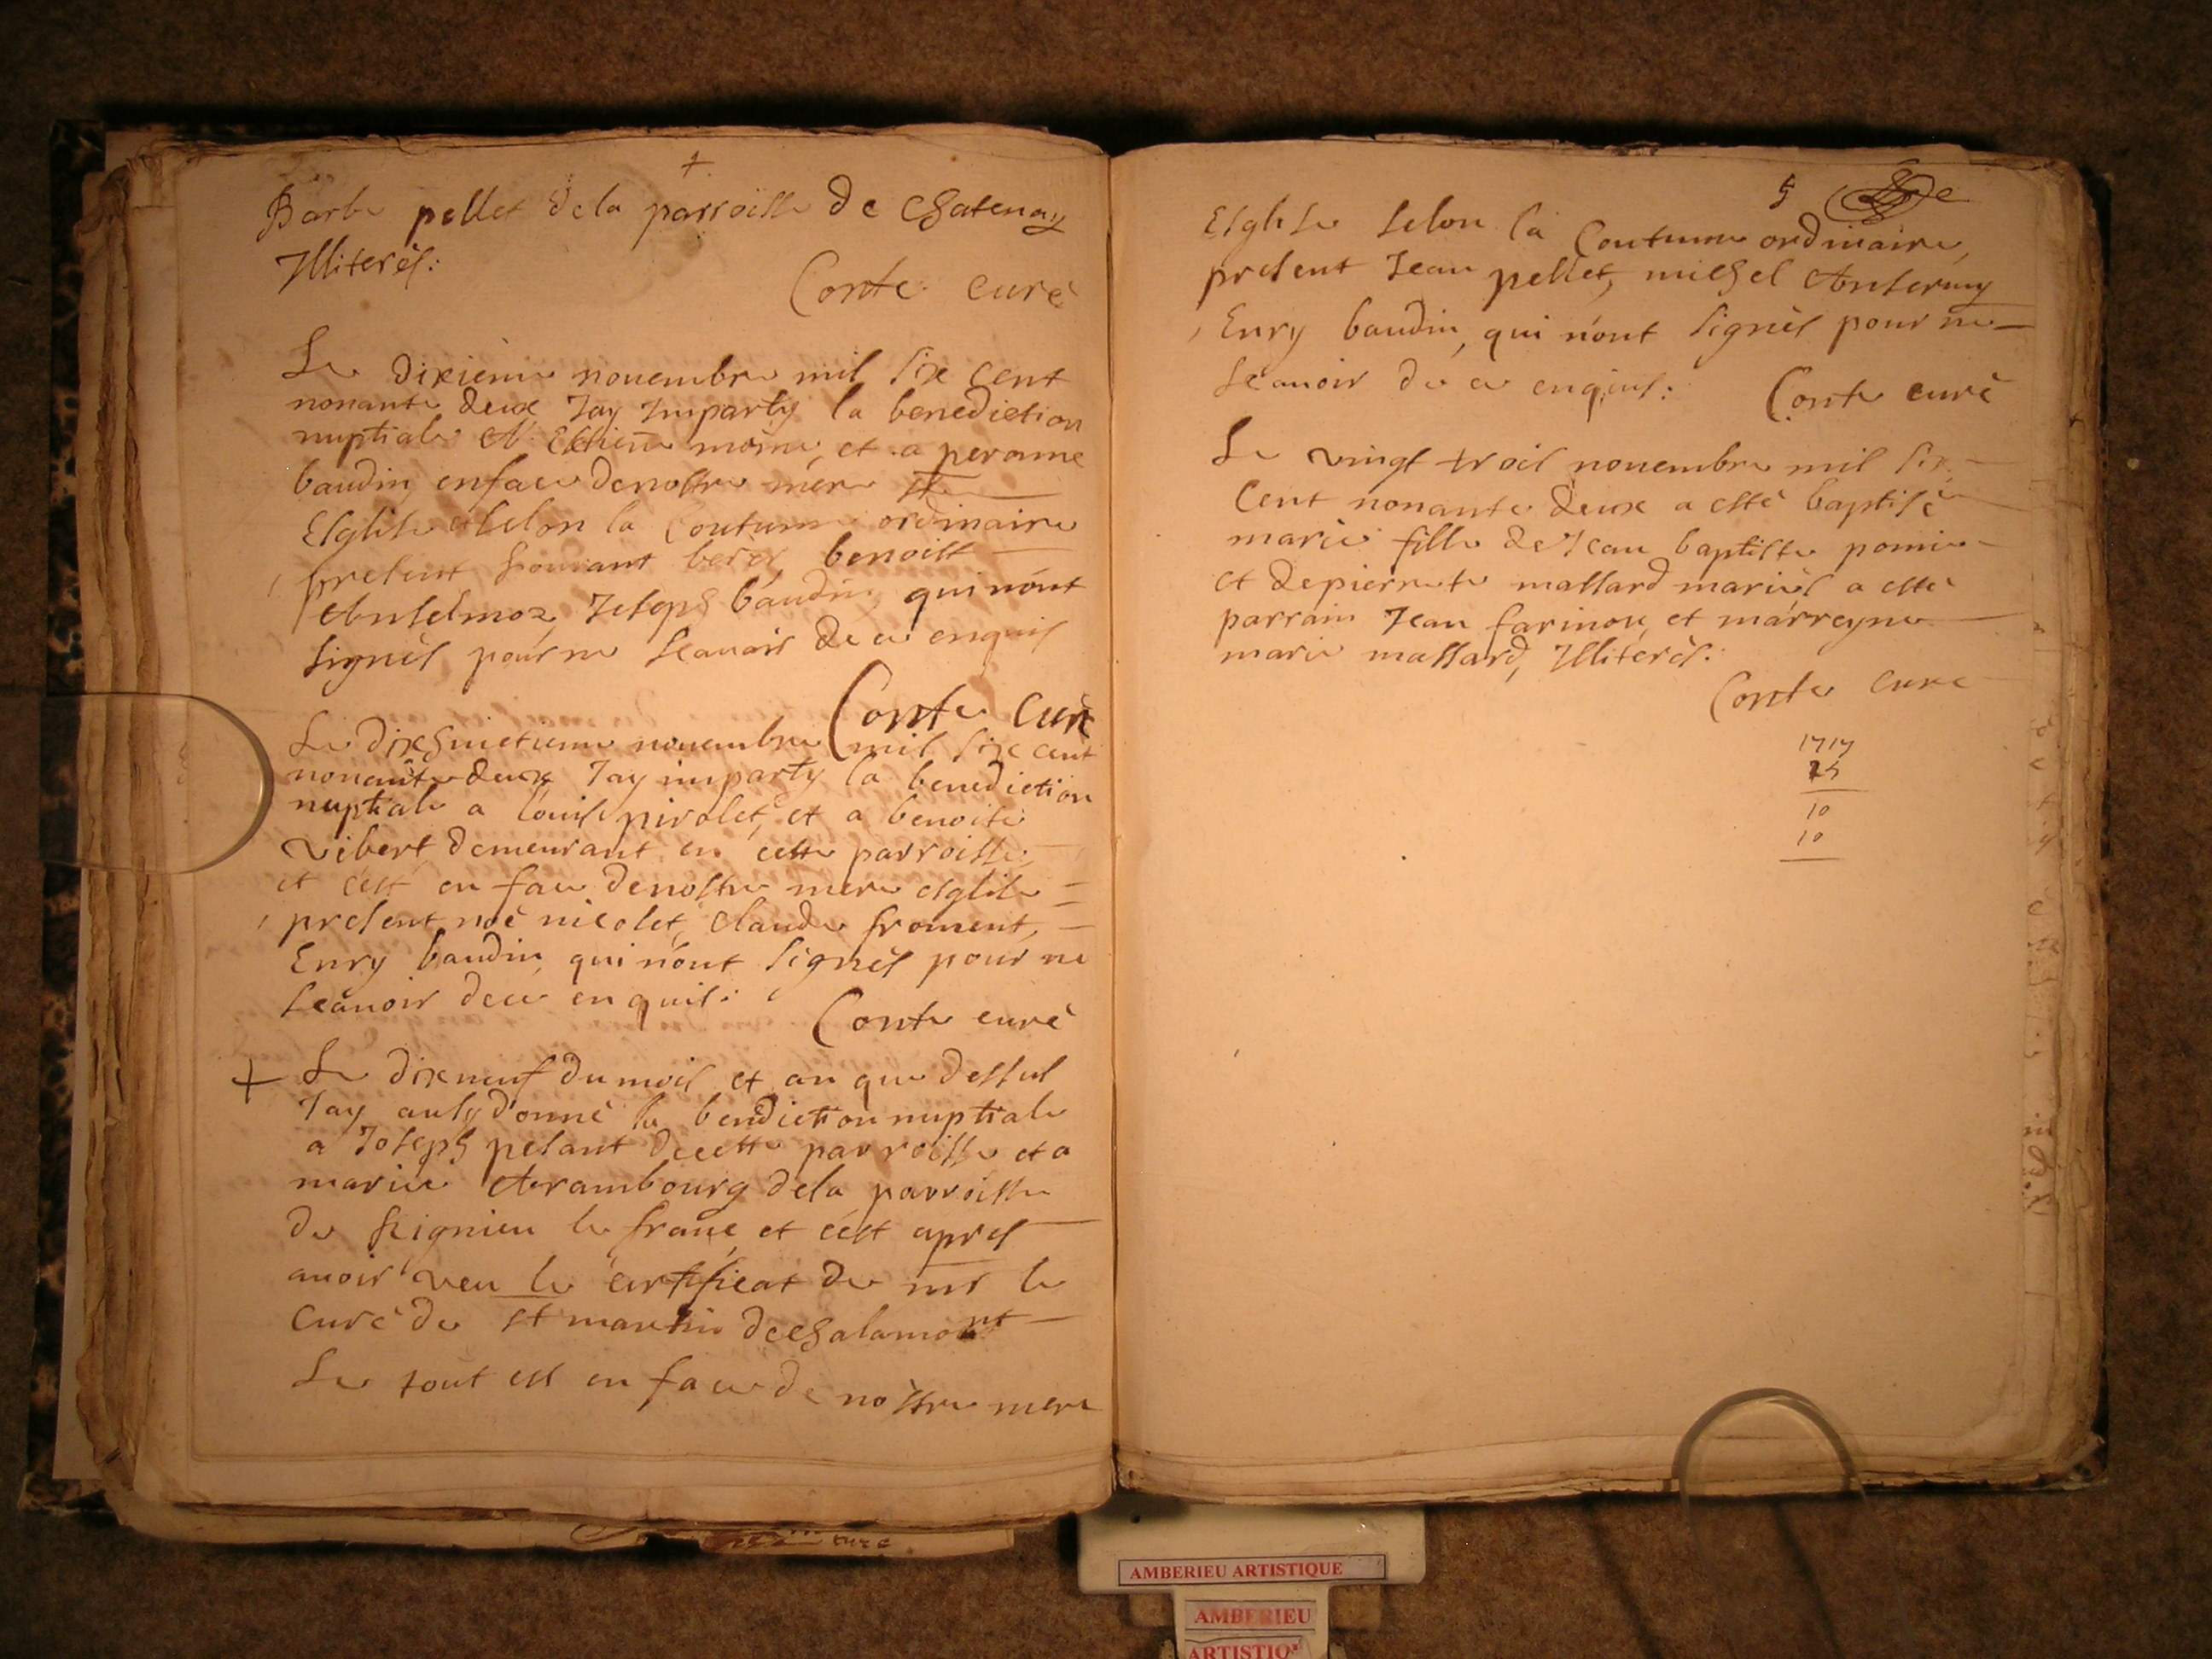 +
Barbe pellet de la parroisse de Chatenay
Illiterés:
Conte curé
Le dixieme nouembre mil six cent
nonante deux Jay Imparty la benediction
nuptiale A Estiene moine, et a peronne
baudin en face de nostre mere ste
Esglise et selon la Coutume ordinaire
present benoist
Anselmoz, Joseph baudin, qui n'ont
signés pour ne scauoir de ce enquis
Conte Curé
Le dixhuictieme nouembre mil six cent
nonante deux Jay imparty la benediction
nuptiale a louis pirolet, et a benoite
vibert demeurant en cette parroisse,
et c'est en face de nostre mere esglise =
present noè nicolet, Claude froment,
Enry baudin, qui n'ont signés pour ne
scauoir de ce enquis:
Conte curé
+ Le dixneuf du mois et an que dessus
Jay ausy donné la bendiction nuptiale
a Joseph pesant de cette parroisse et a
marie Arambourg de la parroisse
de seignieu le franc, et c'est apres
auoir veu le certificat de mr le
Curé de st martin de chalamont
Le tout est en face de nostre mere
5
Esglise selon la Coutume ordinaire,
present Jean pellet, michel
Enry baudin, qui n'ont signés pour ne
scauoir de ce enquis: Conte curé
Le vingt trois nouembre mil six
Cent nonante deux a esté baptisé
marie fille de Jean baptiste
et de pierrete massard mariés a esté
parrain Jean farinou, et marreyne
marie massard, Illiterés:
Conte Curé
1717
25
10
10
curé
AMBERIEU ARTISTIQUE
AMBERIEU
ARTISTIQ